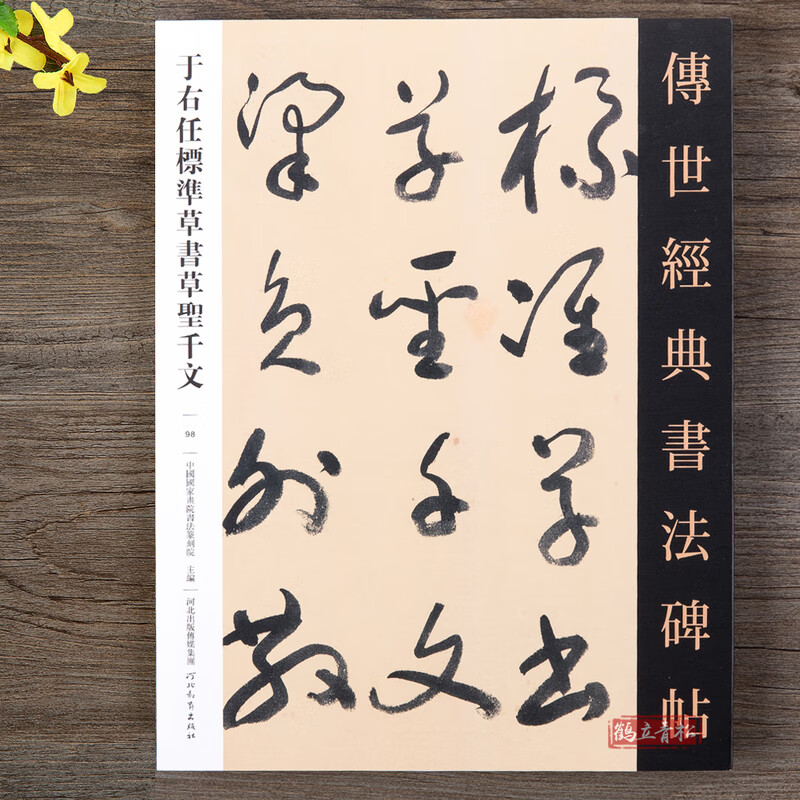 傳世經典書法碑帖
標準草書
草聖千文
梁員外散
于右任標準草書草聖千文
98
中國國家畫院書法篆刻院 主編
河北出版傳媒集團
河北教育出版社
鹤立青松